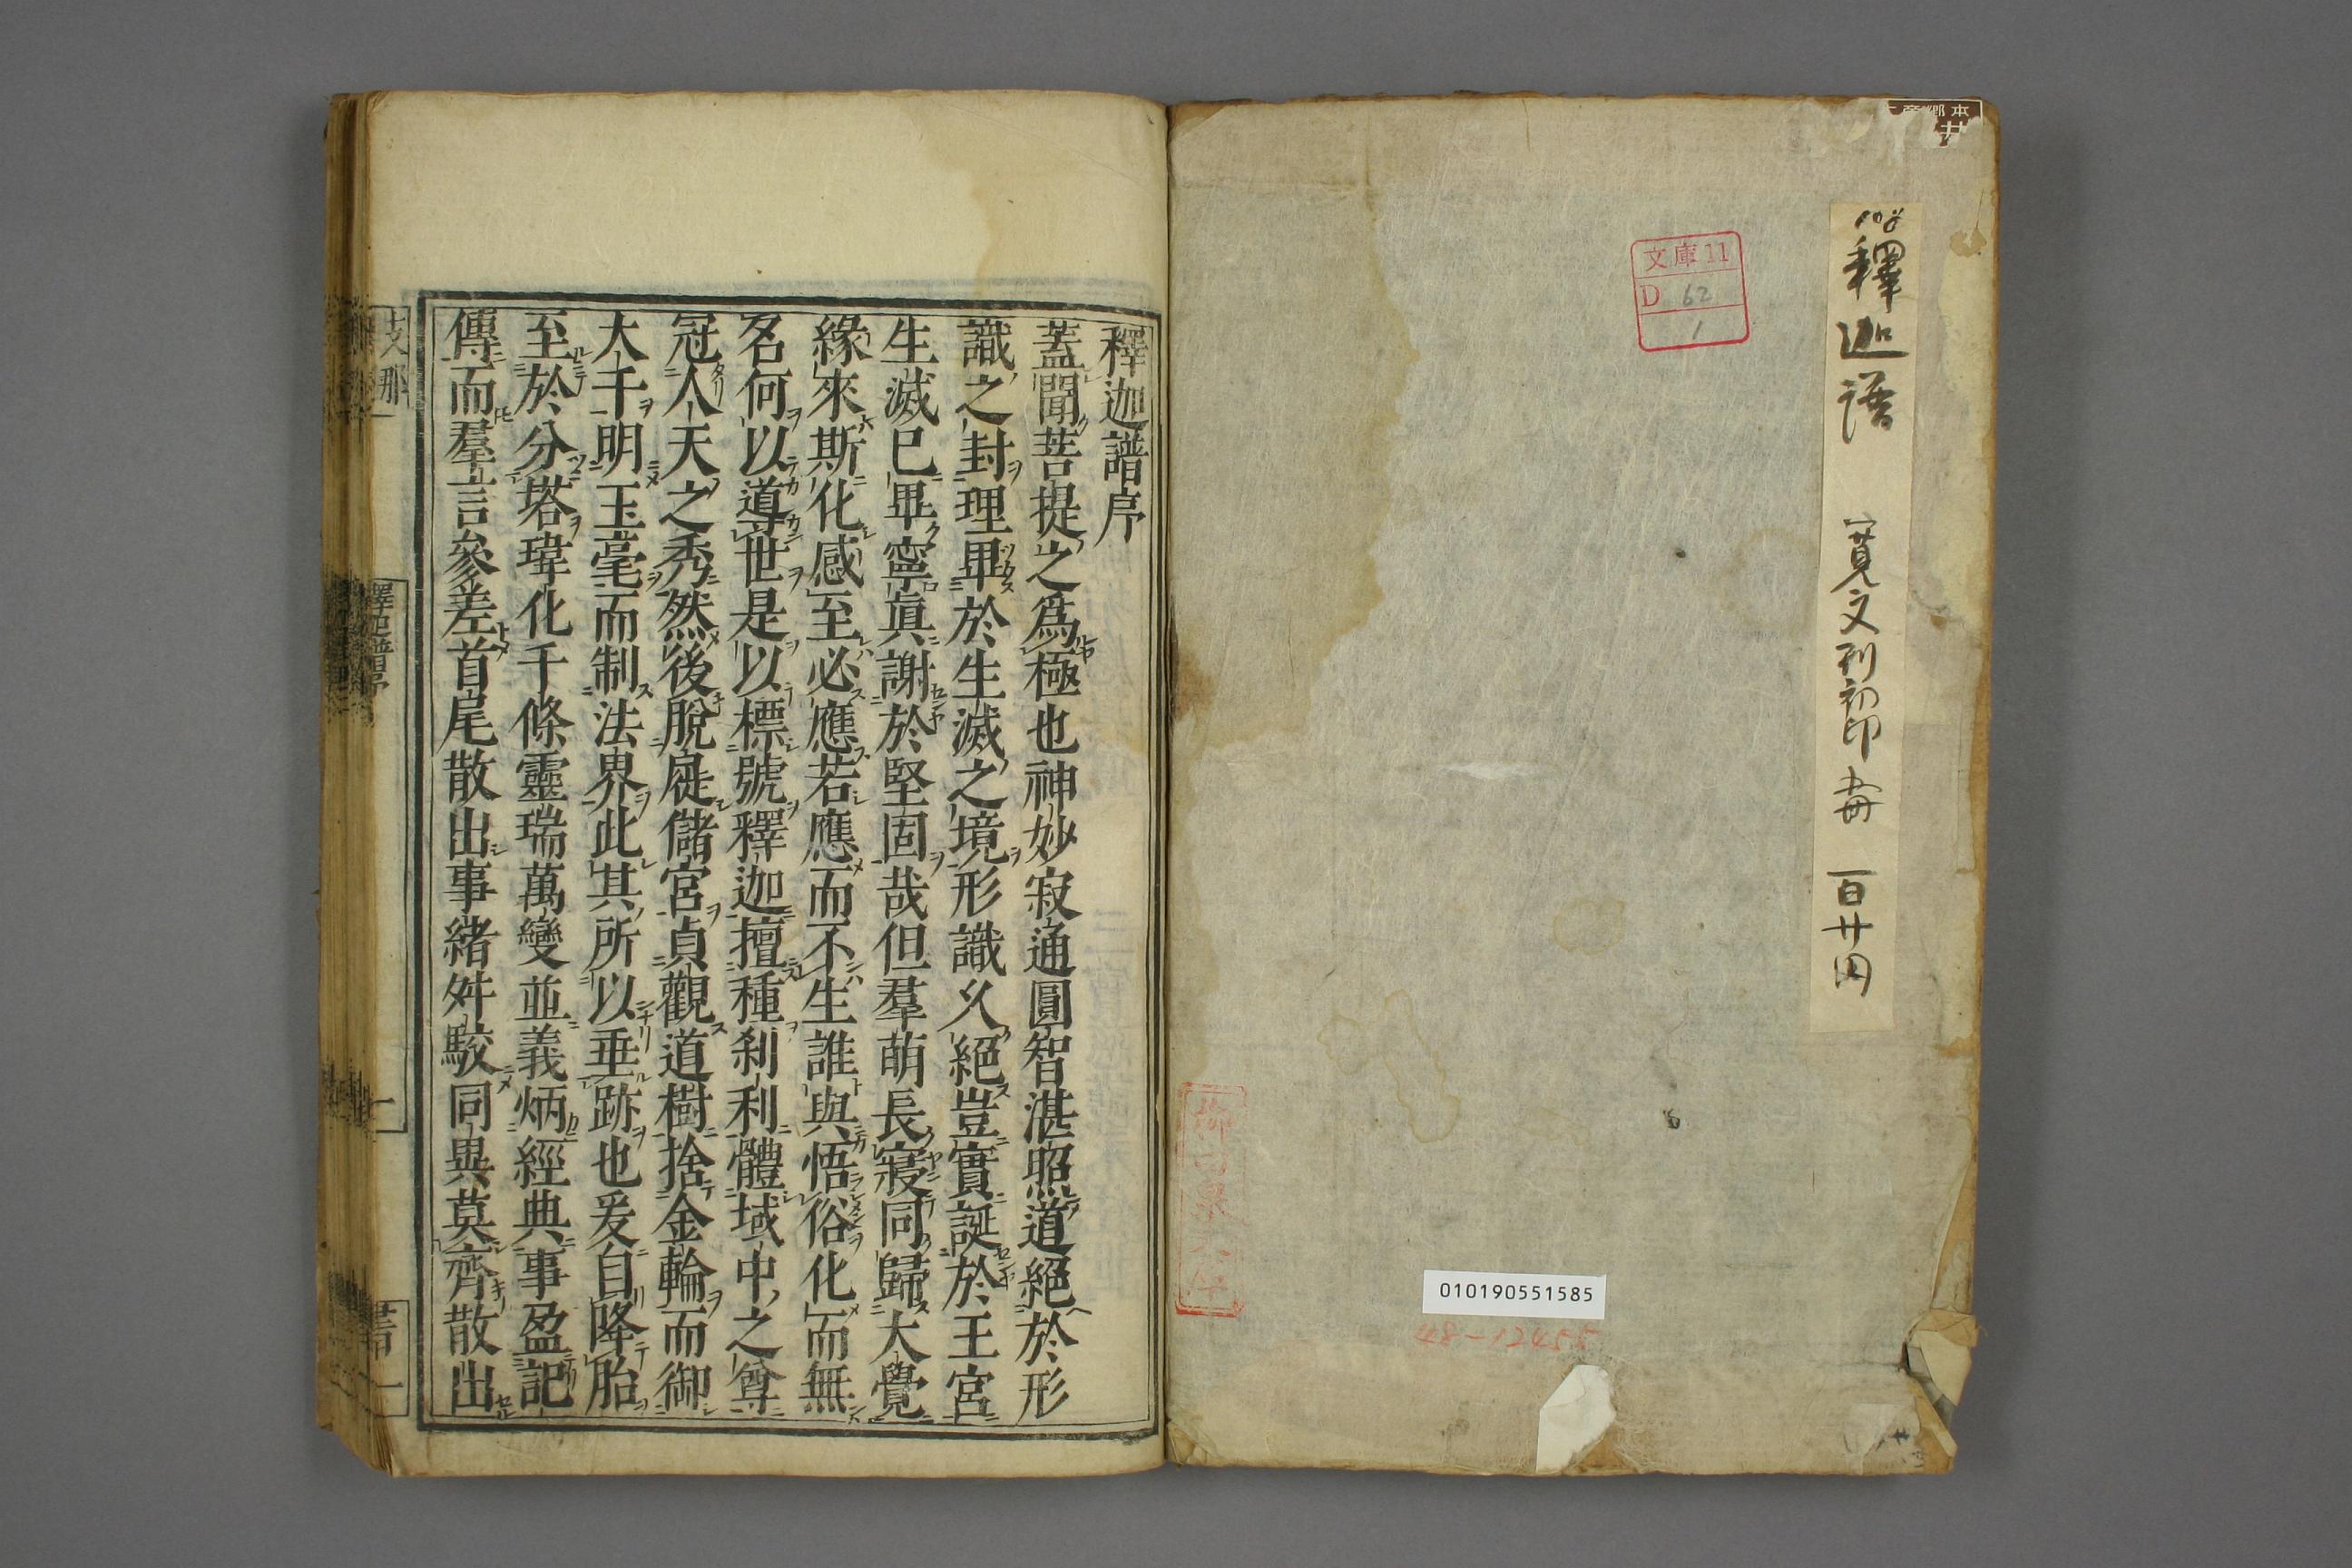 釋迦譜 寛文刊初印 五冊 百廿円
文庫11
D 62
1
010190551585
48-12455
釋迦譜序
蓋聞菩提之爲極也神妙寂通圓智湛照道絕於形
識之封理畢於生滅之境形識久絕豈實誕於王宮
生滅已畢寧眞謝於堅固哉但羣萌長寢同歸大覺
緣來斯化感至必應若應而不生誰與悟俗化而無
名何以導世是以標號釋迦擅種刹利體域中之尊
冠人天之秀然後脫屣儲宮貞觀道樹捨金輪而御
大千明玉毫而制法界此其所以垂跡也爰自降胎
至於分塔瑋化千條靈瑞萬變並義炳經典事盈記
傳而羣言參差首尾散出事緒舛駁同異莫齊散出
支那
釋迦譜序
一